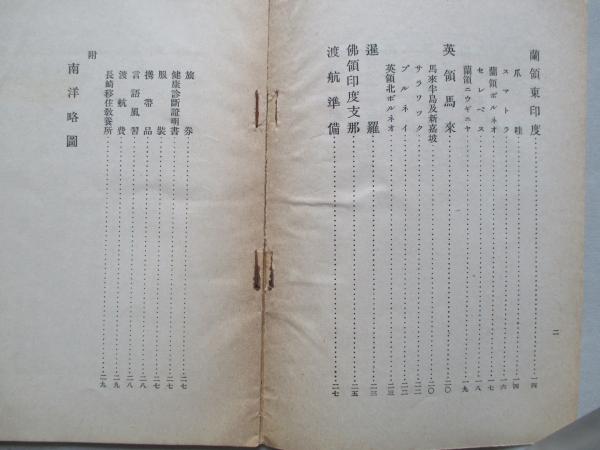 二
蘭領東印度……一四
爪哇……一四
スマトラ……一六
蘭領ボルネオ……一七
セレベス……一八
蘭領ニウギニヤ……一九
英領馬來……二〇
馬來半島及新嘉坡……二〇
サラワツク……二二
ブルネイ……二二
英領北ボルネオ……二三
暹羅……二三
佛領印度支那……二五
渡航準備……二七
旅券……二七
健康診斷證明書……二七
服裝……二七
携帶品……二八
言語風習……二八
渡航費……二九
長崎移住敎養所……二九
附
南洋略圖